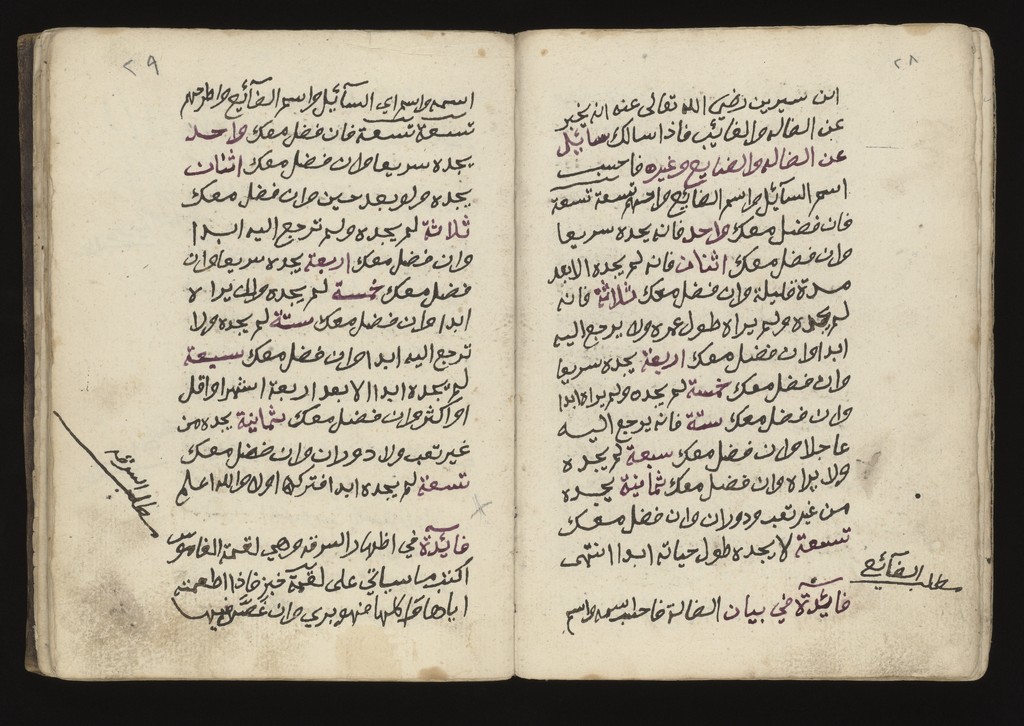 ٢٨
ابن سيرين رضي الله تعالى عنه انه يخبر
عن الضاله والغائب فاذا سالك سائل
عن الضاله والضايع وغيره فاحسب
اسم السآئل واسم الضائع واطرحهم تسعة تسعة
فان فضل معك واحد فانه يجده سريعا
وان فضل معك اثنان فانه لم يجده الا بعد
مدة قليلة وان فضل معك ثلاثة فانه
لم يجده ولم يراه طول عمره ولا يرجع اليه
ابدا وان فضل معك اربعة يجده سريعا
وان فضل معك خمسة لم يجده ولم يراه ابدا
وان فضل معك ستة فانه يرجع اليه
عاجلا وان فضل معك سبعة لم يجده
ولا يراه وان فضل معك ثمانية يجده
من غير تعب ودوران وان فضل معك
تسعة لا يجده طول حياته ابدا انتهى
مطلب الضآئع
فائدة في بيان الضالة فاحسب اسمه واسم
٢٩
اسمه واسم اي السآئل واسم الضآئع واطرحهم
تسعة تسعة فان فضل معك واحد
يجده سريعا وان فضل معك اثنان
يجده ولو بعد حين وان فضل معك
ثلاثة لم يجده ولم ترجع اليه ابدا
وان فضل معك اربعة يجده سريعا وان
فضل معك خمسة لم يجده ولن يراه
ابدا وان فضل معك ستة لم يجده ولا
ترجع اليه ابدا وان فضل معك سبعة
لم يجده ابدا الا بعد اربعة اشهر او اقل
او اكثر وان فضل معك ثمانية يجده من
غير تعب ولا دوران وان فضل معك
تسعة لم يجده ابدا اولا والله اعلم
مطلب السرقه
فائدة في اظهار السرقه وهي لقمة القاموس
اكتب ما سياتي على لقمة خبز فاذا اطعمته
اياها واكلها فهو بري وان غصّه فيها